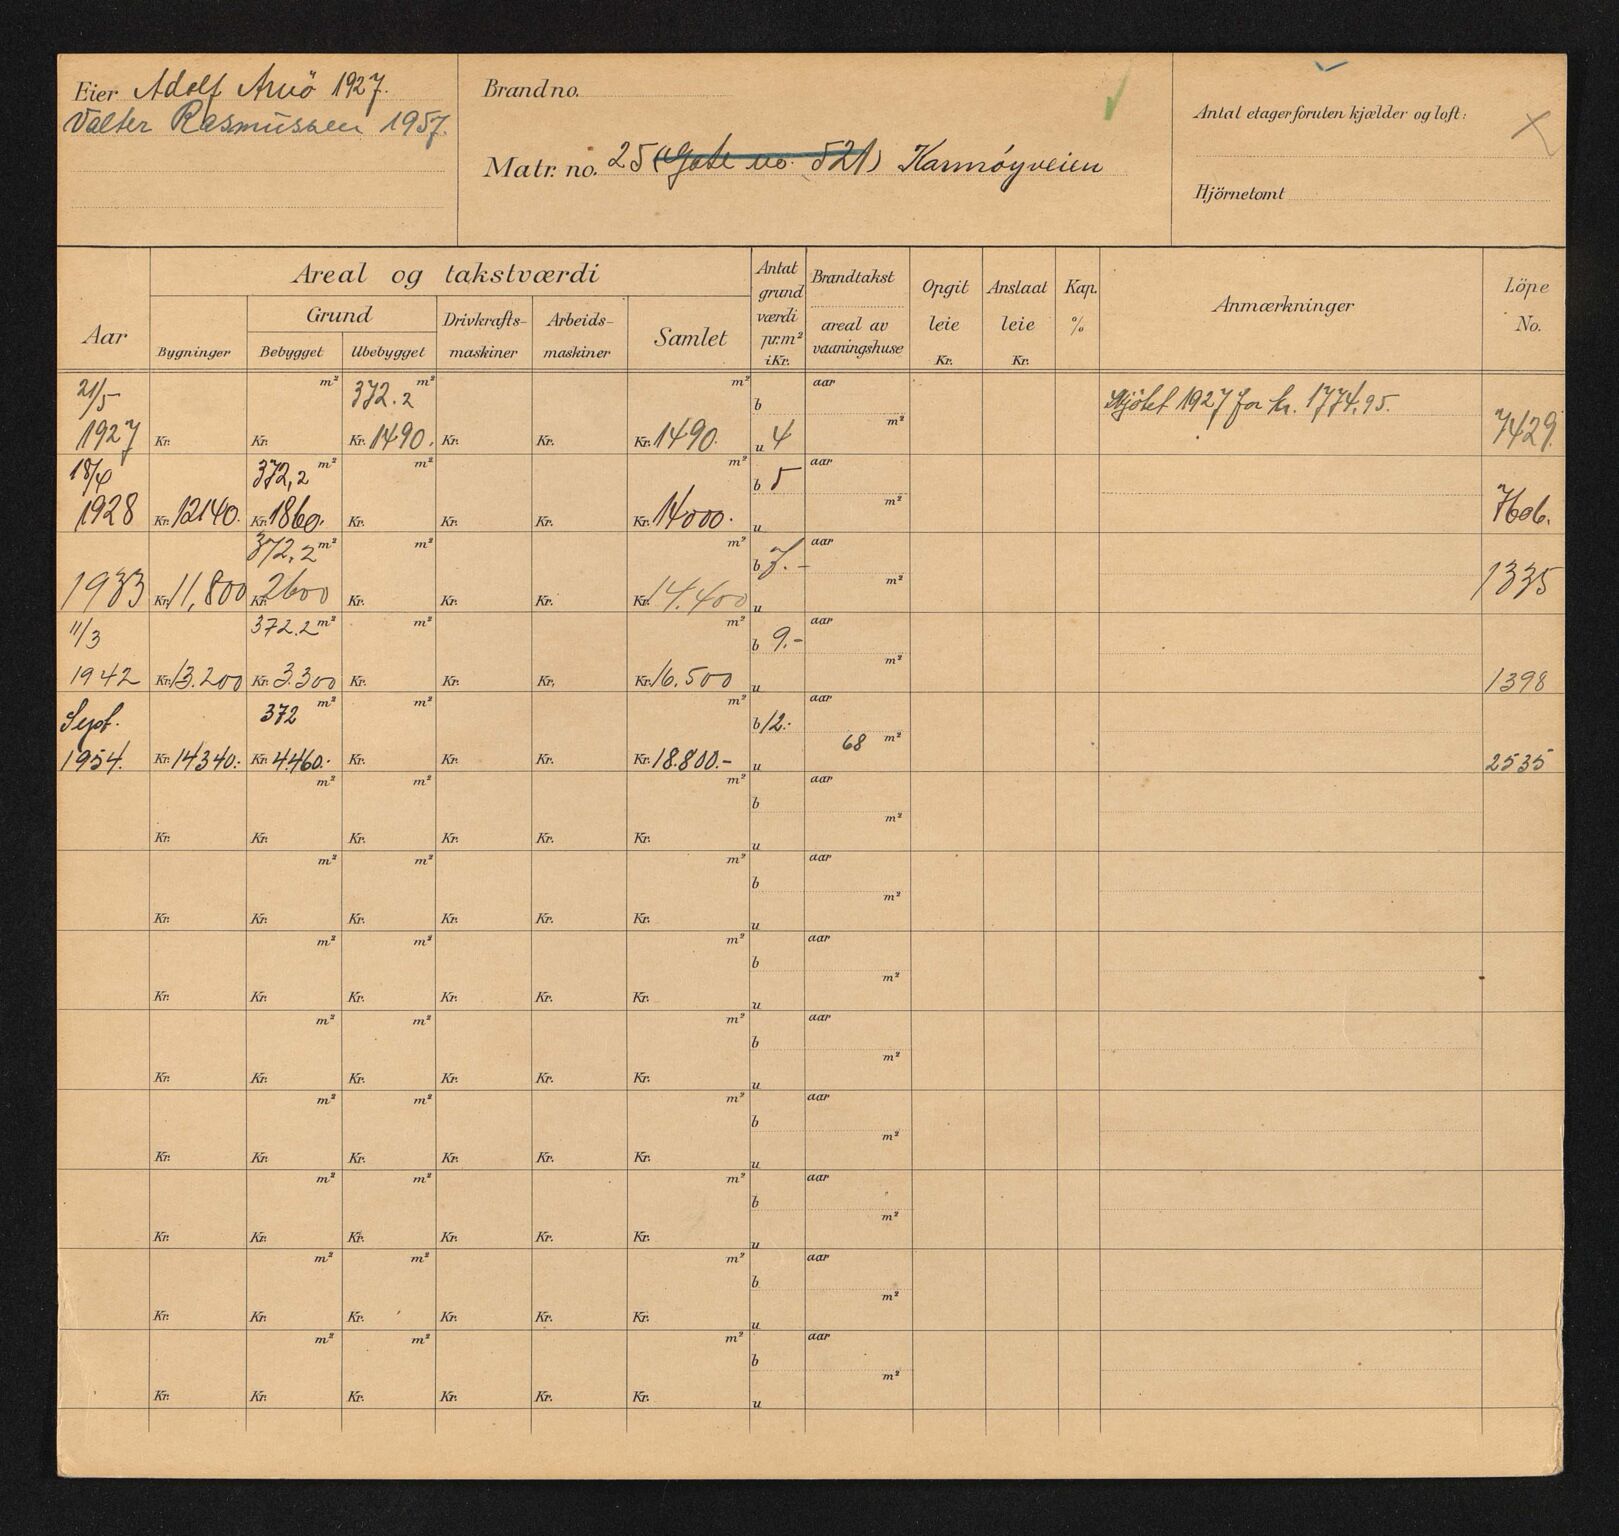 Eier Adolf Arnö 1927.
Valter Rasmussen 1957.
Brandno.
Matr. no. 25 (Gate no. 521) Karmøyveien
Antal etager foruten kjælder og loft:
Hjörnetomt
Aar
Areal og takstværdi
Bygninger
Grund
Bebygget Ubebygget
Drivkrafts-
maskiner
Arbeids-
maskiner
Samlet
Antat
grund
værdi
pr.m²
i Kr.
Brandtakst
areal av
vaaningshuse
Opgit
leie
Kr.
Anslaat
leie
Kr.
Kap.
%
Anmærkninger
Löpe
No.
21/5 m² 372.2 m² m² b aar Skjötet 1927 for kr. 1774,95.
1927 Kr. Kr. Kr. 1490. Kr. Kr. Kr. 1490. u 4 m² 7429.
18/4 372,2 m² m² m² b 5 aar
1928 Kr. 12140. Kr. 1860. Kr. Kr. Kr. Kr. 14000. u m² 7606.
372,2 m² m² m² b 7.- aar
1933 Kr. 11,800 Kr. 2600 Kr. Kr. Kr. Kr. 14.400 u m² 1335
11/3 372.2 m² m² m² b 9.- aar
1942 Kr. 13.200 Kr. 3.300 Kr. Kr. Kr. Kr. 16.500 u m² 1398
Sept. 372 m² m² m² b 12.- aar
1954. Kr. 14340.- Kr. 4460.- Kr. Kr. Kr. Kr. 18.800.- u 68 m² 2535
m² m² m² b aar
Kr. Kr. Kr. Kr. Kr. Kr. u m²
m² m² m² b aar
Kr. Kr. Kr. Kr. Kr. Kr. u m²
m² m² m² b aar
Kr. Kr. Kr. Kr. Kr. Kr. u m²
m² m² m² b aar
Kr. Kr. Kr. Kr. Kr. Kr. u m²
m² m² m² b aar
Kr. Kr. Kr. Kr. Kr. Kr. u m²
m² m² m² b aar
Kr. Kr. Kr. Kr. Kr. Kr. u m²
m² m² m² b aar
Kr. Kr. Kr. Kr. Kr. Kr. u m²
m² m² m² b aar
Kr. Kr. Kr. Kr. Kr. Kr. u m²